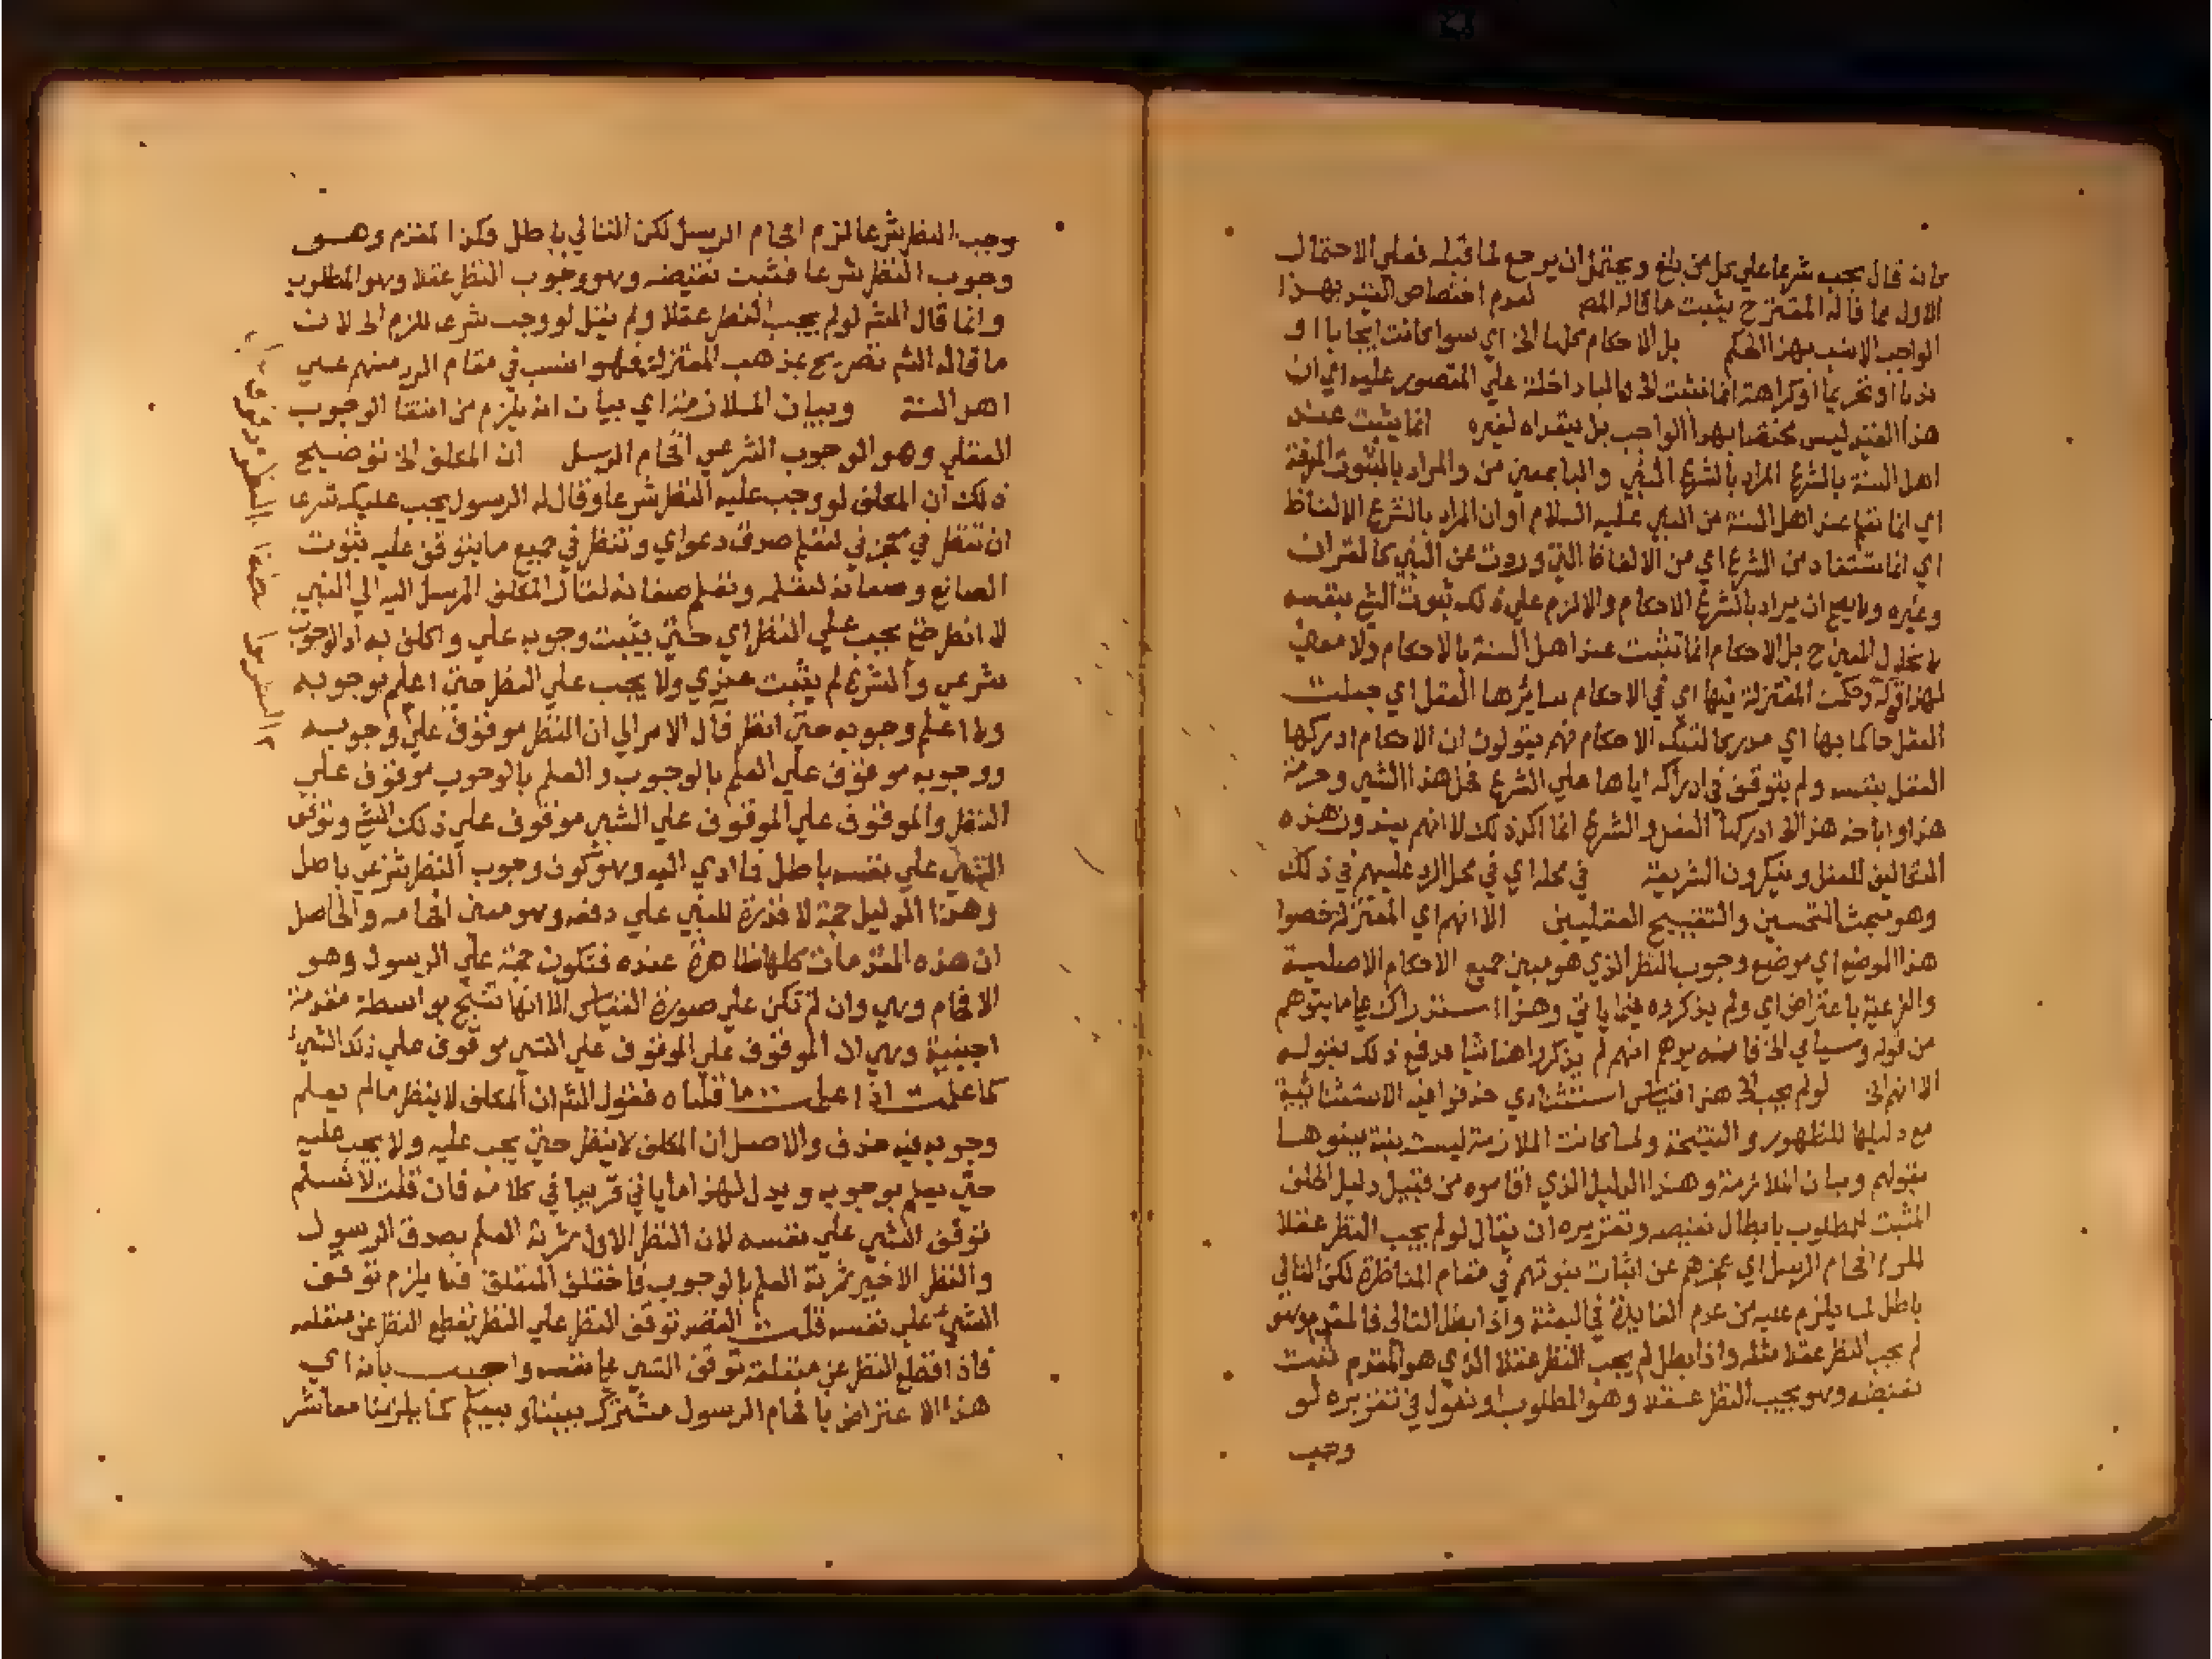 كانه قال يجب شرعا على كل من بلغ ويحتمل ان يرجع لما قبله فعلى الاحتمال
الاول مما قاله المقترح يثبت ما قاله المص لعدم اختصاص القيد بهذا
الواجب الانسب بهذا الحكم بل الاحكام كلها الخ اي سوا كانت ايجابا او
ندبا او تحريما او كراهة انما تثبت الخ فالباء داخلة علي المقصور عليه اي ان
هذا القيد ليس مختصا بهذا الواجب بل يتعداه لغيره انما يثبت عند
اهل السنة بالشرع المراد بالشرع النبي والبا بمعني من والمراد بالثبوت المعرفة
اي انما تعلم عند اهل السنة من النبي عليه السلام او ان المراد بالشرع الالفاظ
اي انما تستفاد من الشرع اي من الالفاظ التي وردت عن النبي كالقران
وغيره ولا يصح ان يراد بالشرع الاحكام والا لزم علي ذلك ثبوت الشي بنفسه
لانحلال المعني ح بل الاحكام انما تثبت عند اهل السنة بالاحكام ولا معني
لهذا قوله وحكمت المعتزلة فيها اي في الاحكام سايرها العقل اي جعلت
العقل حاكما بها اي مدركا لتلك الاحكام فهم يقولون ان الاحكام ادركها
العقل بنفسه ولم يتوقف في ادراكه اياها علي الشرع فحل هذا الشي وحرمة
هذا واباحة هذا الخ ادركها العقل والشرع انما اكد ذلك لا انهم يبدون هذه
المخالفين للعقل وينكرون الشريعة في محله اي في محل الرد عليهم في ذلك
وهو مبحث التحسين والتقبيح العقليين الا انهم اي المعتزلة خصوا
هذا الموضع اي موضع وجوب النظر الذي هو مبين جميع الاحكام الاصلية
والفرعية باعتراض اي ولم يذكروه فيما ياتي وهذا استدراك علي ما يتوهم
من قوله وسياتي الخ فانه يوهم انهم لم يذكروا هنا شيا فدفع ذلك بقوله
الا انهم الخ لو لم يجب الخ هذا قياس استثنادي حذفوا فيه الاستثنائية
مع دليلها للظهور والنتيجة ولما كانت الملازمة ليست بينة بينوها
بقولهم وبيان الملازمة وهذا الدليل الذي اقاموه من قبيل دليل الخلف
المثبت للمطلوب بابطال نقيضه وتقريره ان يقال لو لم يجب النظر عقلا
للزم افحام الرسل اي عجزهم عن اثبات نبوتهم في مقام المناظرة لكن التالي
باطل لما يلزم عليه من عدم الفايدة في البعثة واذا بطل التالي فالمقدم وهو
لم يجب النظر عقلا مثله واذا بطل لم يجب النظر عقلا الذي هو المقدم ثبت
نقيضه وهو يجب النظر عقلا وهو المطلوب او نقول في تقريره لو
وجب
وجب النظر شرعا لزم افحام الرسل لكن التالي باطل فكذا المقدم وهو
وجوب النظر شرعا فثبت نقيضه وهو وجوب النظر عقلا وهو المطلوب
وانما قال الشم لو لم يجب النظر عقلا ولم يقل لو وجب شرعا للزم الخ لان
ما قاله الشم تصريح بمذهب المعتزلة فهو انسب في مقام الرد منهم علي
اهل السنة وبيان الملازمة اي بيان انه يلزم من انتفا الوجوب
العقلي وهو الوجوب الشرعي افحام الرسل ان المكلف الخ توضيح
ذلك ان المكلف لو وجب عليه النظر شرعا وقال له الرسول يجب عليك شرعا
ان تنظر في معجزتي لتعلم صدق دعواي وتنظر في جميع ما يتوقف عليه ثبوت
الصانع وصفاته لتعلمه وتعلم صفاته لقال المكلف المرسل اليه الي النبي
لا انظر حتي يجب علي النظر اي حتي يثبت وجوبه علي واكلف به اذ الوجوب
شرعي والشرع لم يثبت عندي ولا يجب علي النظر حتي اعلم بوجوبه
ولا اعلم وجوبه حتي انظر فآل الامر الي ان النظر موقوف علي وجوبه
ووجوبه موقوف علي العلم بالوجوب والعلم بالوجوب موقوف علي
النظر والموقوف علي الموقوف علي الشي موقوف علي ذلك الشي وتوقف
الشي علي نفسه باطل فما ادي اليه وهو كون وجوب النظر شرعي باطل
وهذا الدليل حجة لا قدرة للنبي علي دفعه وهو معني افحامه والحاصل
ان هذه المقدمات كلها ظاهرة عنده فتكون حجة علي الرسول وهو
الافحام وهي وان لم تكن علي صورة القياس الا انها تنتج بواسطة مقدمة
اجنبية وهي ان الموقوف علي الموقوف علي الشي موقوف علي ذلك الشي
كما علمت اذا علمت ما قلناه فقول الشم ان المكلف لا ينظر ما لم يعلم
وجوبه فيه حذف والاصل ان المكلف لا ينظر حتي يجب عليه ولا يجب عليه
حتي يعلم بوجوبه ويدل لهذا ما ياتي قريبا في كلامه فان قلت لا نسلم
توقف الشي علي نفسه لان النظر الاول ثمرته العلم بصدق الرسول
والنظر الاخير ثمرته العلم بالوجوب فاختلف المتعلق فما يلزم توقف
الشي علي نفسه قلت القصد توقف النظر علي النظر بقطع النظر عن متعلقه
فاذا قطع النظر عن متعلقه توقف الشي علي نفسه واجيب بانه اي
هذا الاعتراض بافحام الرسول مشترك بيننا وبينكم كما يلزمنا معاشر